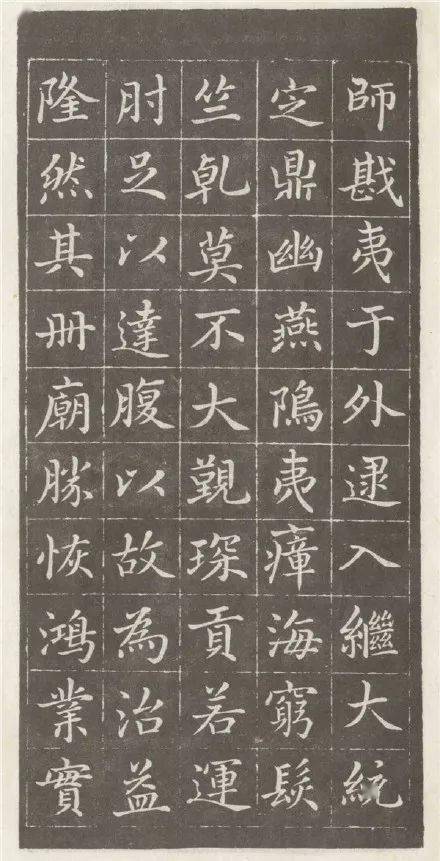 師戡夷于外逮入繼大統
定鼎幽燕隝夷瘴海窮髮
竺乹莫不大覲琛貢若運
肘足以達腹以故為治益
隆然其册廟勝恢鴻業實